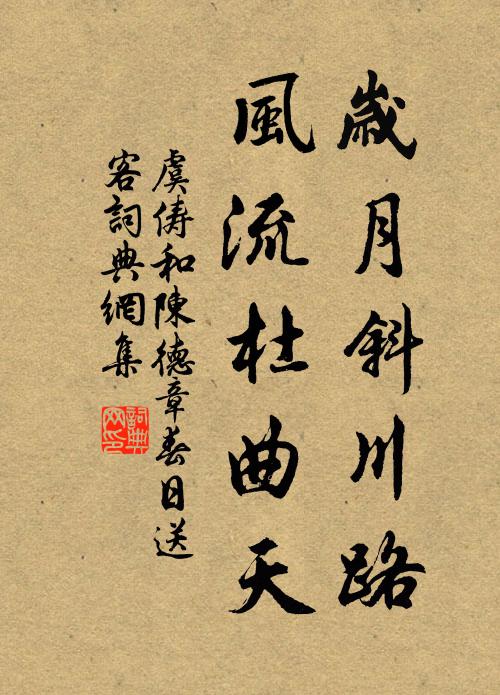 歲月斜川路
風流杜曲天
虞儔和陳德章春日送
客詞典網集
詞典
网印